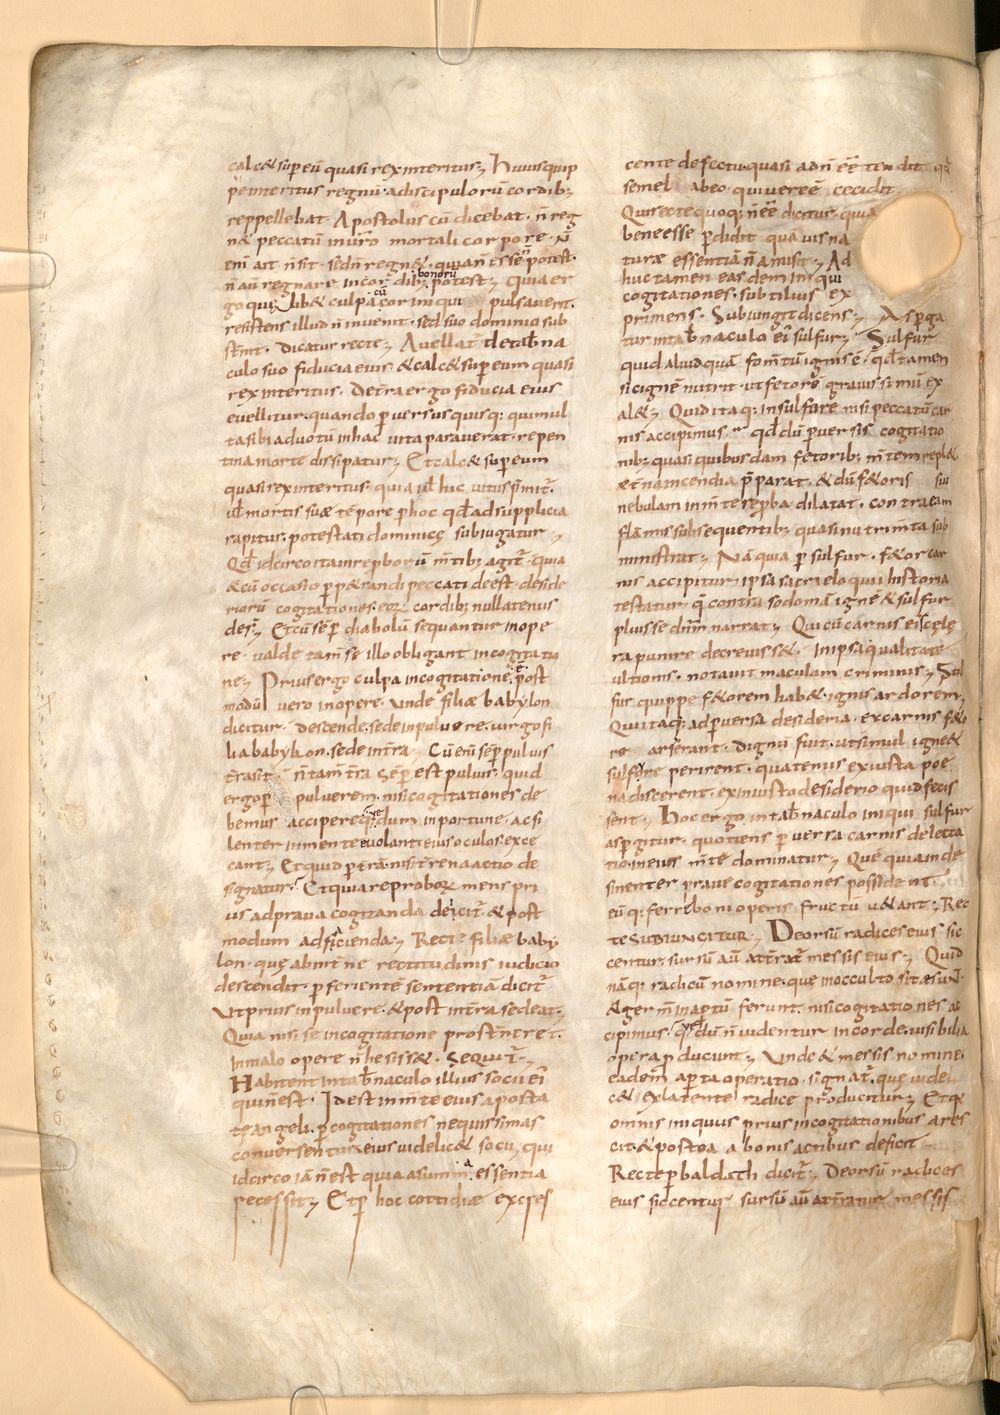 calc& sup eū quasi rex interitus; Huiusquip
pe interitus regnū adiscipulorū cordib;
reppellebat Apostolus cū dicebat · n̄ reg
n& peccatū in ur̄o mortali corpore · N̄
eni ait n̄ sit · sed n̄ regn& · quia n̄ esse n̄ potest ·
n̄ aū regnare in cor dib; bonorū potest; quia er
go quislib& culpa cū cor iniqui pulsauerit ·
resistens illud n̄ inuenit · sed suo dominio sub
st̄nit · dicatur recte; Auellat̄ de tab̄na
culo suo fiducia eius · & calc& sup eum quasi
rex interitus · De t̄ra ergo fiducia eius
euellitur · quando puersus quisq: qui mul
ta sibi ad uotū in hac uita parauerat · repen
tina morte dissipatur; Et calc& sup eum
quasi rex interitus · quia ul̄ hic uitus p̄mit̄ ·
ul̄ mortis suæ tēpore p hoc qd̄ ad supplicia
rapitur · potestati dominicę subiugatur;
Qd̄ idcirco ita in reproborū m̄tib; agit̄ · quia
& cū occasio pp&randi peccati deest · deside
riorū cogitationes eoꝝ cordib; nullatenus
des̄; Et cū sēp diabolū sequantur in ope
re · ualde tam̄ se illo obligant in cogitatio
ne; Prius ergo culpa in cogitatione ē · post
modū uero in opere · unde filiæ babylon
dicitur · descende · sede in puluere · uirgo fi
lia babylon · sede in t̄ra · Cū eni sēp puluis
t̄ra sit · n̄ tam̄ t̄ra sēp est puluis · quid
ergo p pulverem · nisi cogitationes de
bemus accipere · q̄ se dum inportune · ac si
lenter in mente euolant · eius oculos exce
cant; Et quid p t̄rā · nisi t̄rena actio de
signatur · Et quia reproboꝝ mens pri
us ad praua cogitanda deicit̄ · & post
modum ad facienda; Recte filiæ baby
lon · quę ab int̄ne rectitudinis iudicio
descendit · p feriente sententiā dicit̄
Ut prius in puluere · & post in t̄ra sedeat;
Quia nisi se in cogitatione prost̄neret ·
in malo opere n̄ hesiss& · Sequit̄;
Habitent in tab̄naculo illius socii ei
qui n̄ est · Id est in m̄te eius aposta
tę angeli · p cogitationes nequissimas
conuersentur · eius uidelic& socii · qui
idcirco iā n̄ est quia a summa essentia
recessit; Et p hoc cottidiæ excres
cente defectu quasi ad n̄ ēē tendit · qđ
semel ab eo · qui uere ē cecidit
Qui recte quoq: n̄ ēē dicitur · quia
bene esse p didit quā uis na
turæ essentiā n̄ amisit; Ad
huc tamen easdem iniqui
cogitationes · subtilius ex
primens · Subiungit dicens; Asp̄ga
tur in tab̄naculo ei sulfur; Sulfur
quid aliud quā fom̄tū ignis ē · qd̄ tamen
sic ignē nutrit · ut fetorē grauissimū ex
al&; Quid itaq: in sulfore nisi peccatū car
nis accipimus · qd̄ dū puersis cogitatio
nib; quasi quibusdam fetorib; m̄tem repl&
æt̄na incendia p̄parat · & dū f&oris sui
nebulam in m̄te reproba dilatat · contra eam
flāmis subsequentib; quasi nutrim̄ta sub
ministrat; Nā quia p sulfur · f&or car
nis accipitur · ipsa sacri eloquii historia
testatur · q̄ contra sodomā ignē & sulfur
pluisse dn̄m narrat; Qui cū carnis ei scęlę
ra punire decreuiss& · in ipsa qualitate
ultionis · notauit maculam criminis; Sul
fur quippe f&orem hab& · ignis ardorem ·
Qui itaq: ad puersa desideria · ex carnis f&o
re arserant · dignū fuit · ut simul igne &
sulfore perirent · quatenus ex iusta poe
na discerent · ex iniusto desiderio quid fecis
sent; Hoc ergo in tab̄naculo iniqui sulfur
aspgitur · quotiens p uersa carnis delecta
tio in eius m̄te dominatur; Quē quia in de
sinenter prauę cogitationes possident ·
eū q: ferre boni operis fructū u&ant; Rec
te SUBIUNGITUR; Deorsū radices eius · sic
centur · sursū aū att̄rat̄ messis eius; Quid
nāq: radicū nomine · quę in occulto sitæ s̄ ·
& germ̄ in aptū ferunt · nisi cogitationes ac
cipimus · quę dū n̄ uidentur in corde · uisibilia
opera p ducunt; Unde & messis nomine ·
eadem apta operatio · signat̄ · quę uideli
c& ex latente radice producitur; Et q̄
omnis iniquus prius in cogitationibus ares
cit & postea a bonis actibus deficit ·
Recte p baldach dicit̄; Deorsū radices
eius siccentur sursū aū att̄ratur messis